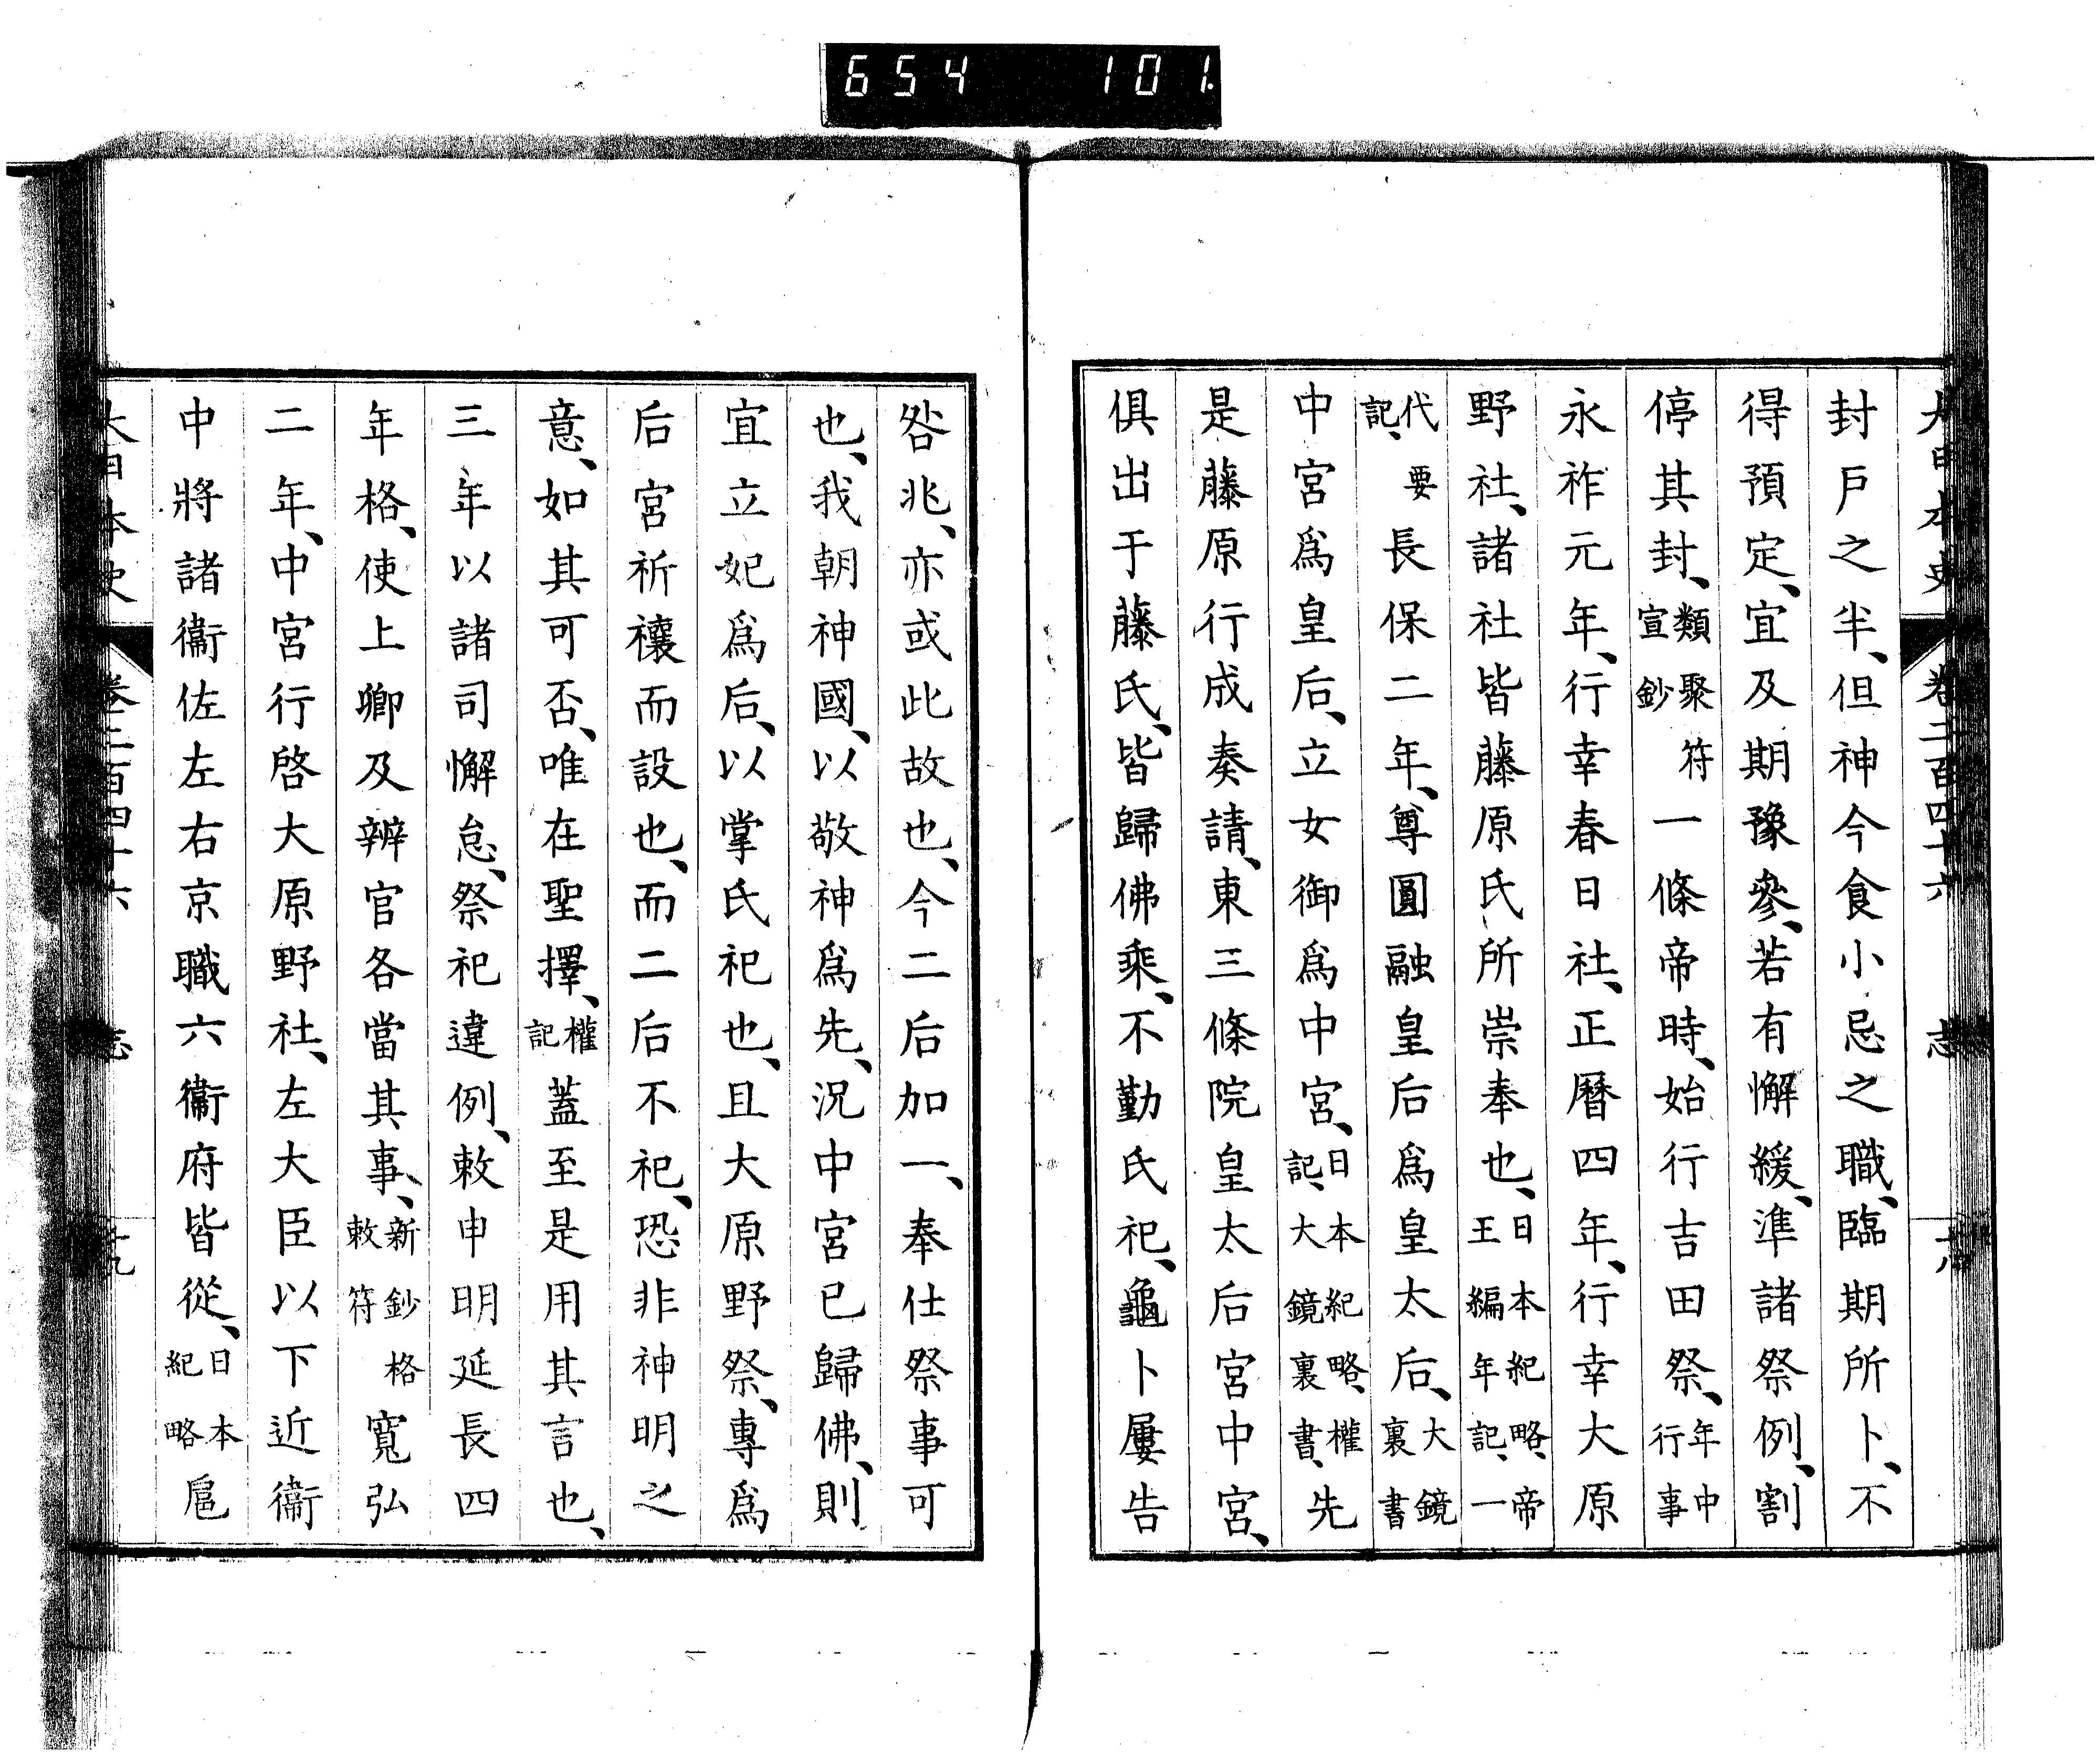 654 101.
大日本史 卷二百四十六 志 十八
封戸之半、但神今食小忌之職、臨期所卜、不
得預定、宜及期豫參、若有懈緩、準諸祭例、割
停其封、類聚符宣鈔 一條帝時、始行吉田祭、年中行事
永祚元年、行幸春日社、正曆四年、行幸大原
野社、諸社皆藤原氏所崇奉也、日本紀略、帝王編年記、一
代要記、 長保二年、尊圓融皇后爲皇太后、大鏡裏書
中宮爲皇后、立女御爲中宮、日本紀略、權記、大鏡裏書、先
是藤原行成奏請、東三條院皇太后宮中宮、
俱出于藤氏、皆歸佛乘、不勤氏祀、龜卜屢告
咎兆、亦或此故也、今二后加一、奉仕祭事可
也、我朝神國、以敬神爲先、況中宮已歸佛、則
宜立妃爲后、以掌氏祀也、且大原野祭、專爲
后宮祈禳而設也、而二后不祀、恐非神明之
意、如其可否、唯在聖擇、權記 蓋至是用其言也、
三年以諸司懈怠、祭祀違例、敕申明延長四
年格、使上卿及辨官各當其事、新鈔格敕符 寬弘
二年、中宮行啓大原野社、左大臣以下近衞
中將諸衞佐左右京職六衞府皆從、日本紀略 扈
大日本史 卷二百四十六 志 十九